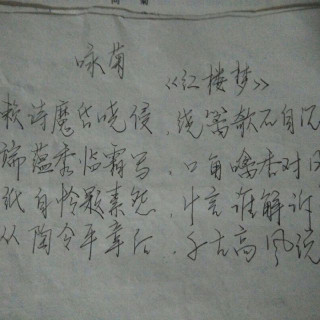 咏菊
《红楼梦》
赖诗魔昏晓侵，绕篱欹石自沉
端蕴秀临霜写，口角噙香对
纸自怜题素怨，片言谁解诉
从陶令平章后，千古高风说